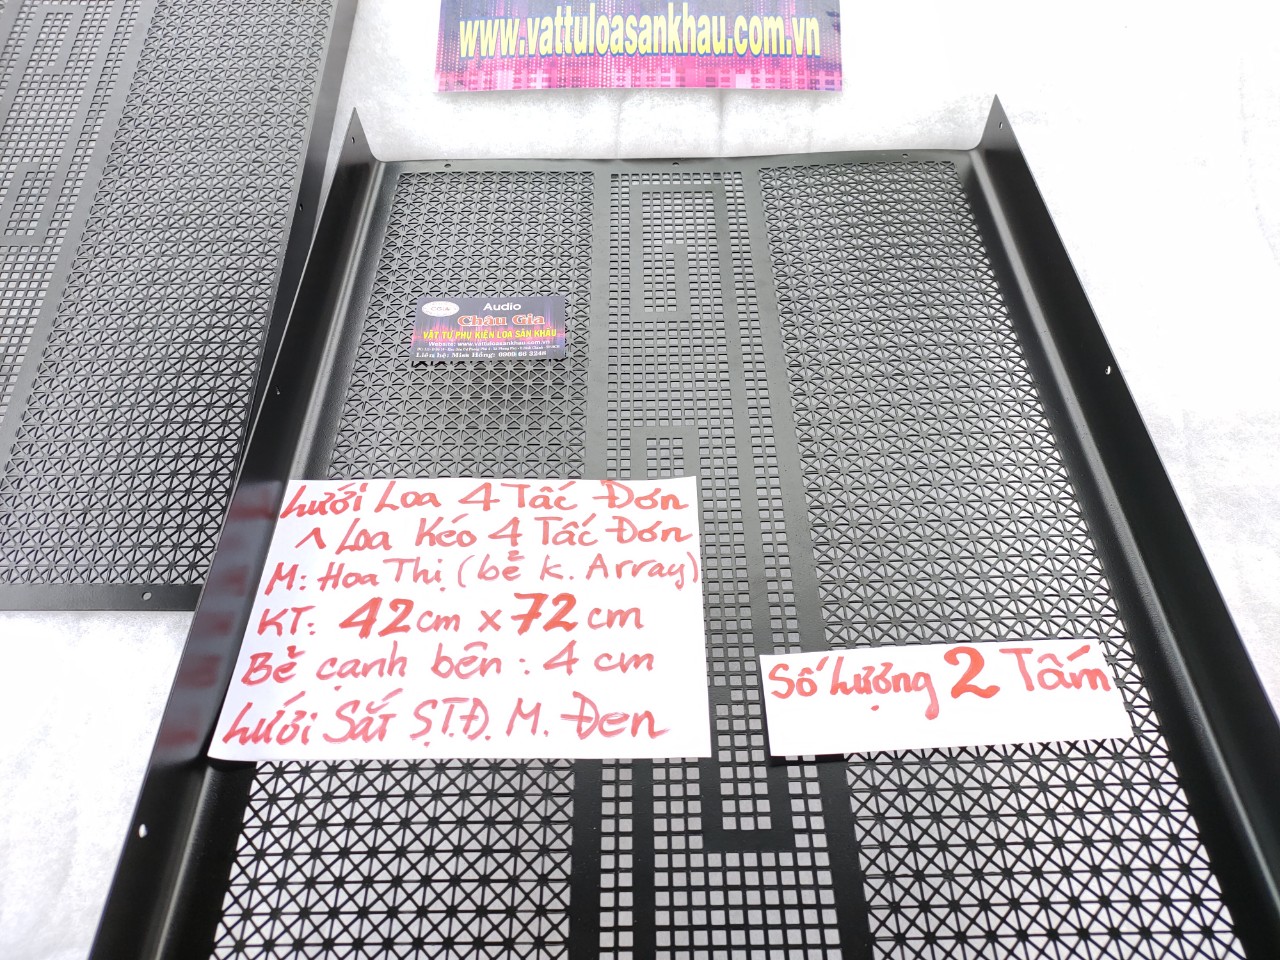 www.vattuloasankhau.com.vn
Audio
Châu Gia
VẬT TƯ PHỤ KIỆN LOA SÂN KHẤU
Website: www.vattuloasankhau.com.vn
Liên hệ: Miss Hồng: 0909 66 2248
Lưới Loa 4 Tấc Đơn
^ Loa Kéo 4 Tấc Đơn
M: Hoa Thị (bẻ k. Array)
KT: 42cm x 72 cm
Bẻ cạnh bên: 4 cm
Lưới Sắt S.T.Đ. M. Đen
Số Lượng 2 Tấm